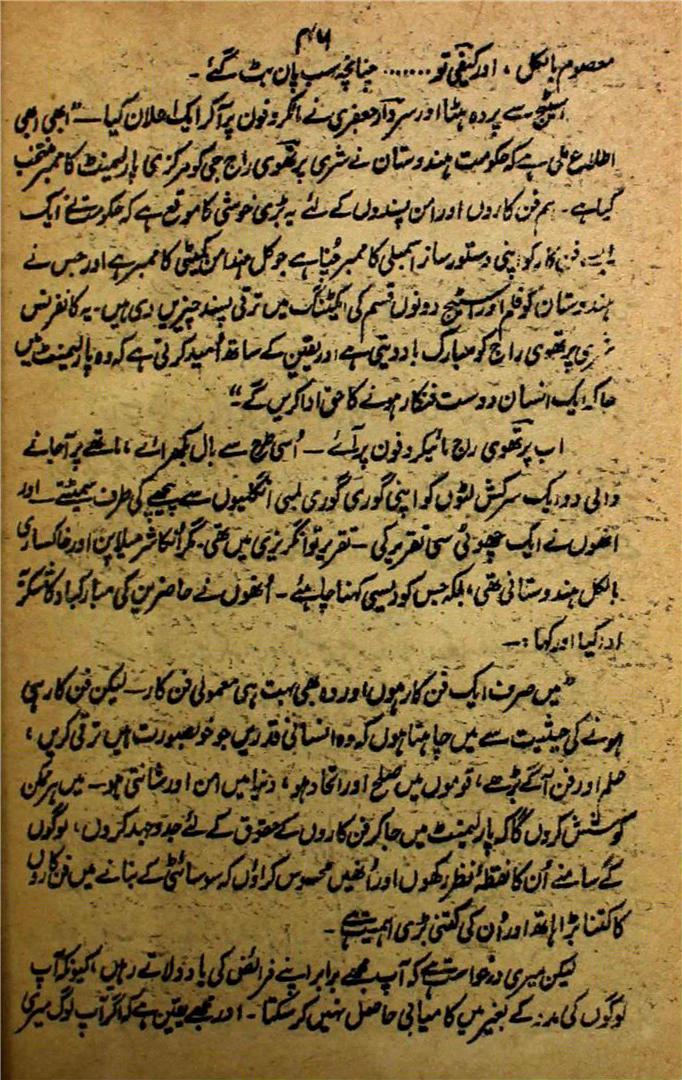 ۴۶
معصوم بالکل، اور کیفی تو ........ چنانچہ سب پان بٹ گئے ۔
اسٹیج سے پردہ ہٹا اور سردار جعفری نے مائکروفون پر آکر ایک اعلان کیا — "ابھی ابھی
اطلاع ملی ہے کہ حکومت ہندوستان نے شری پرتھوی راج جی کو مرکزی پارلیمنٹ کا ممبر منتخب
کیا ہے۔ ہم فن کاروں اور امن پسندوں کے لئے یہ بڑی خوشی کا موقع ہے کہ حکومت نے ایک
ایسے فن کار کو اپنی دستور ساز اسمبلی کا ممبر چنا ہے جو کل ہند امن کمیٹی کا ممبر ہے اور جس نے
ہندوستان کو فلم اور اسٹیج دونوں قسم کی ایکٹنگ میں ترقی پسند چیزیں دی ہیں۔ یہ کانفرنس
شری پرتھوی راج کو مبارک باد دیتی ہے اور یقین کے ساتھ اُمید کرتی ہے کہ وہ پارلیمنٹ میں
جا کر ایک انسان دوست فنکار ہونے کا حق ادا کریں گے۔"
اب پرتھوی راج مائیکروفون پر آئے — اُسی طرح سے بال بکھرائے، ماتھے پر آجانے
والی دو ایک سرکش لٹوں کو اپنی گوری گوری لمبی انگلیوں سے پیچھے کی طرف سمیٹتے — اور
انھوں نے ایک چھوٹی سی تقریر کی — تقریر تو انگریزی میں تھی۔ مگر اُنکا شرمیلا پن اور خاکساری
بالکل ہندوستانی تھی، بلکہ جس کو دیسی کہنا چاہئے ۔ اُنھوں نے حاضرین کی مبارکباد کا شکریہ
ادا کیا اور کہا :—
"میں صرف ایک فن کار ہوں اور وہ بھی بہت ہی معمولی فن کار — لیکن فن کار ہی
ہونے کی حیثیت سے میں چاہتا ہوں کہ وہ انسانی قدریں جو خوبصورت ہیں ترقی کریں،
علم اور فن آگے بڑھے، قوموں میں صلح اور اتحاد ہو، دنیا میں امن اور شانتی ہو — میں ہر ممکن
کوشش کروں گا کہ پارلیمنٹ میں جا کر فن کاروں کے حقوق کے لئے جدوجہد کروں، لوگوں
کے سامنے اُن کا نقطۂ نظر رکھوں اور اُنھیں محسوس کراؤں کہ سوسائٹی کے بنانے میں فن کاروں
کا کتنا بڑا ہاتھ اور اُن کی کتنی بڑی اہمیت ہے ۔
لیکن میری درخواست ہے کہ آپ مجھے برابر اپنے فرائض کی یاد دلاتے رہیں، کیونکہ آپ
لوگوں کی مدد کے بغیر میں کامیابی حاصل نہیں کر سکتا ۔ اور مجھے یقین ہے کہ اگر آپ لوگ میری